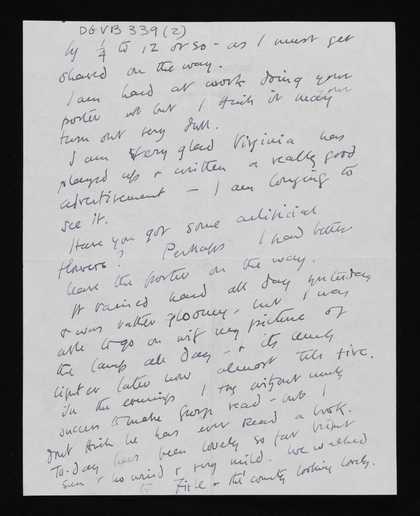 DGVB 339 (2)
by ¼ to 12 or so - as I must get
shaved on the way.
I am hard at work doing your
poster but I think it may
turn out very dull.
I am very glad Virginia has
played up & written a really good
advertisement - I am longing to
see it.
Have you got some artificial
flowers? Perhaps I had better
leave the poster on the way.
It rained hard all day yesterday
& was rather gloomy, but I was
able to go on with my picture of
the lamp all day - & its
lighter later now almost till five.
In the evenings I try without much
success to make read - but I
dont think he has ever read a book.
To-day has been lovely so far bright
sun & no wind & very mild. We walked
to Firle & the country looking lovely.